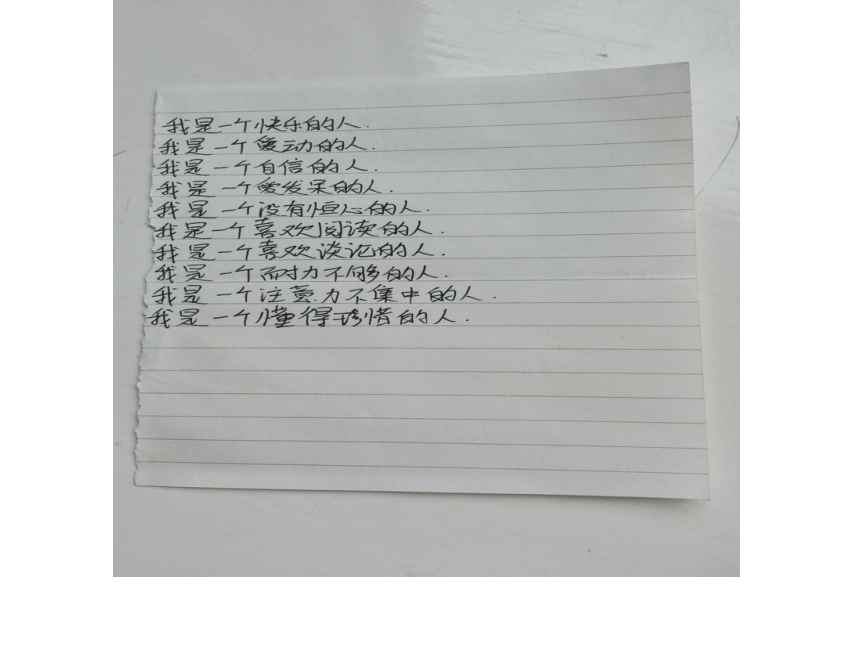 我是一个快乐的人.
我是一个爱动的人.
我是一个自信的人.
我是一个爱发呆的人.
我是一个没有恒心的人.
我是一个喜欢阅读的人.
我是一个喜欢谈论的人.
我是一个耐力不够的人.
我是一个注意力不集中的人.
我是一个懂得珍惜的人.